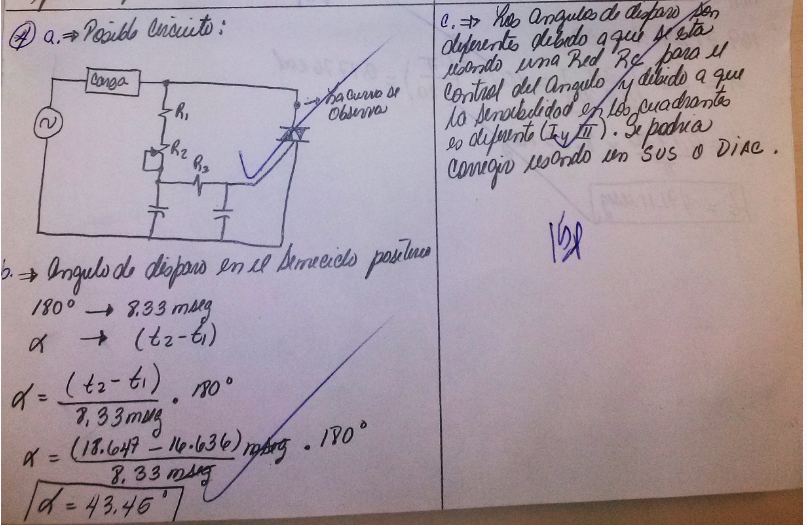 a. ⇒ Posible Circuito:
Carga
R1
R2
R3
→ La curva se
Observa
b. ⇒ Angulo de disparo en el semiciclo positivo
180° → 8.33 mseg
α → (t2-t1)
α = (t2-t1) / 8,33 mseg · 180°
α = (18.647 - 16.636) mseg / 8.33 mseg · 180°
α = 43.45°
c. ⇒ Los angulos de disparo son
diferentes debido a que se esta
usando una Red Rc para el
Control del Angulo y debido a que
la sensibilidad en los cuadrantes
es diferente (I y III). Se podria
corregir usando un SUS o DIAC.